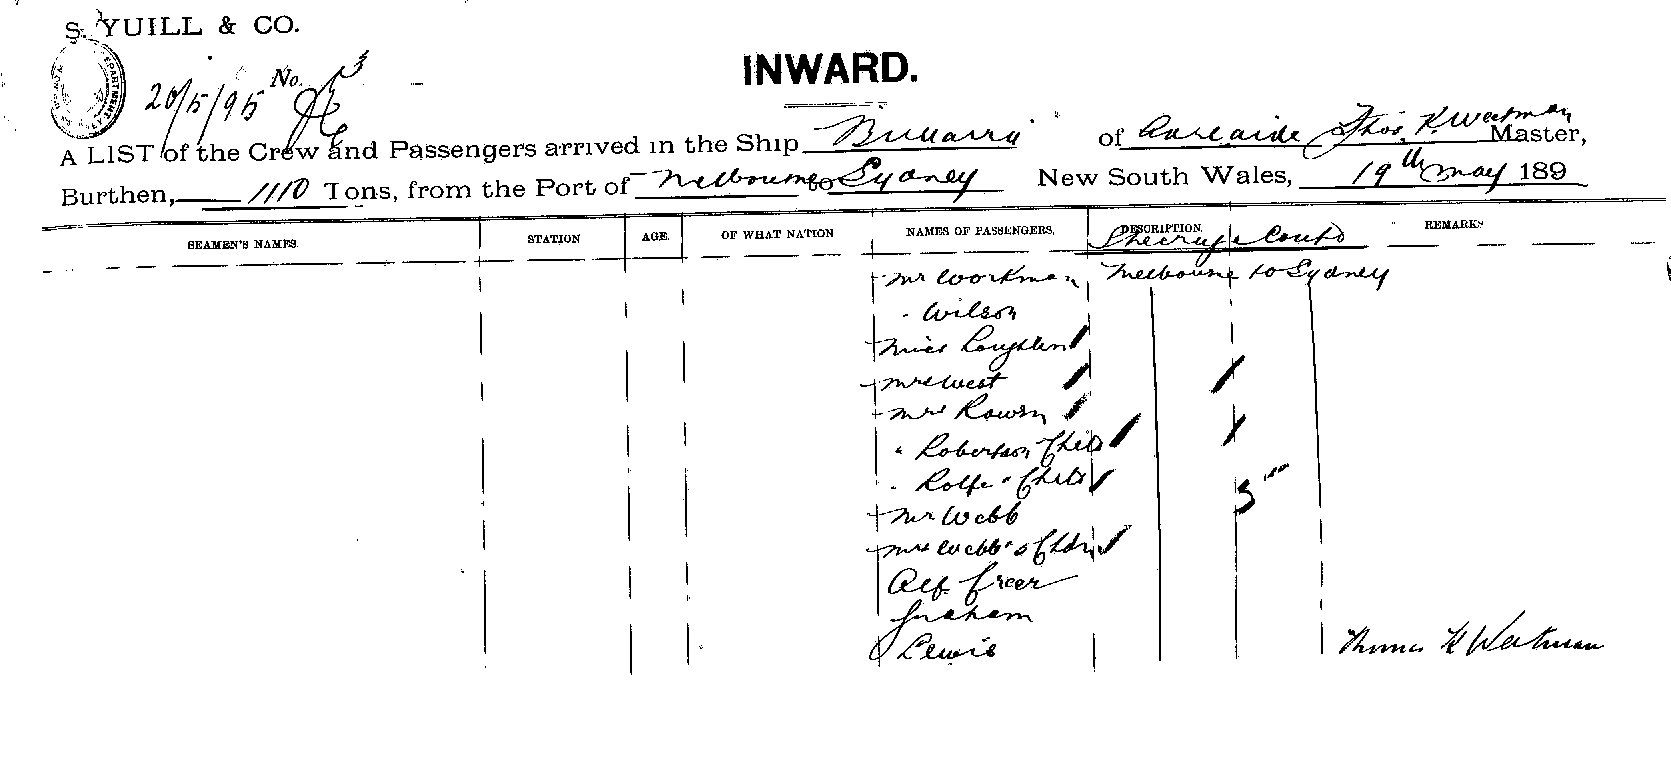 S. YUILL & CO.
INWARD.
20/5/95 No.
A LIST of the Crew and Passengers arrived in the Ship Bullarra of Adelaide Thos. K. Weatman Master,
Burthen, 1110 Tons, from the Port of Melbourne to Sydney New South Wales, 19th May 189
SEAMEN'S NAMES. STATION AGE. OF WHAT NATION NAMES OF PASSENGERS. DESCRIPTION. REMARKS
Mr Workman Melbourne to Sydney
" Wilson
Miss Loughlin
Mrs West
Mrs Rowen
" Robertson Child
" Rolfe " Child
3
Mr Webb
Mrs Webb & Chdn
Alf. Freer
Graham
Lewis
Thomas K Weatman